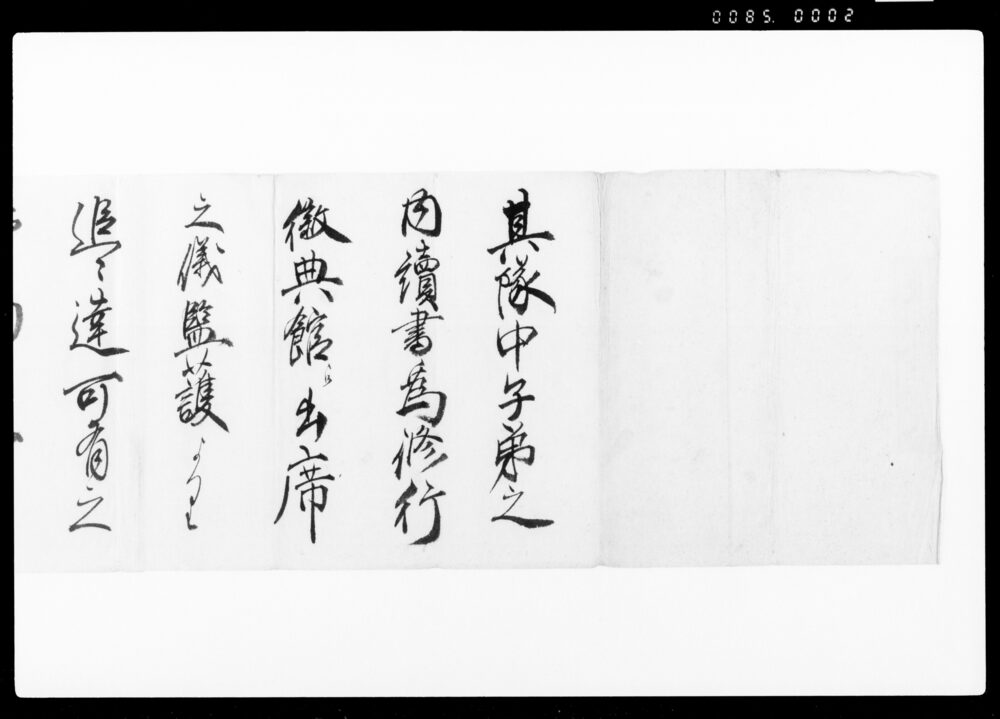 0085. 0002
其隊中子弟之
内讀書為修行
徽典館江出席
之儀監護より
追々達可有之